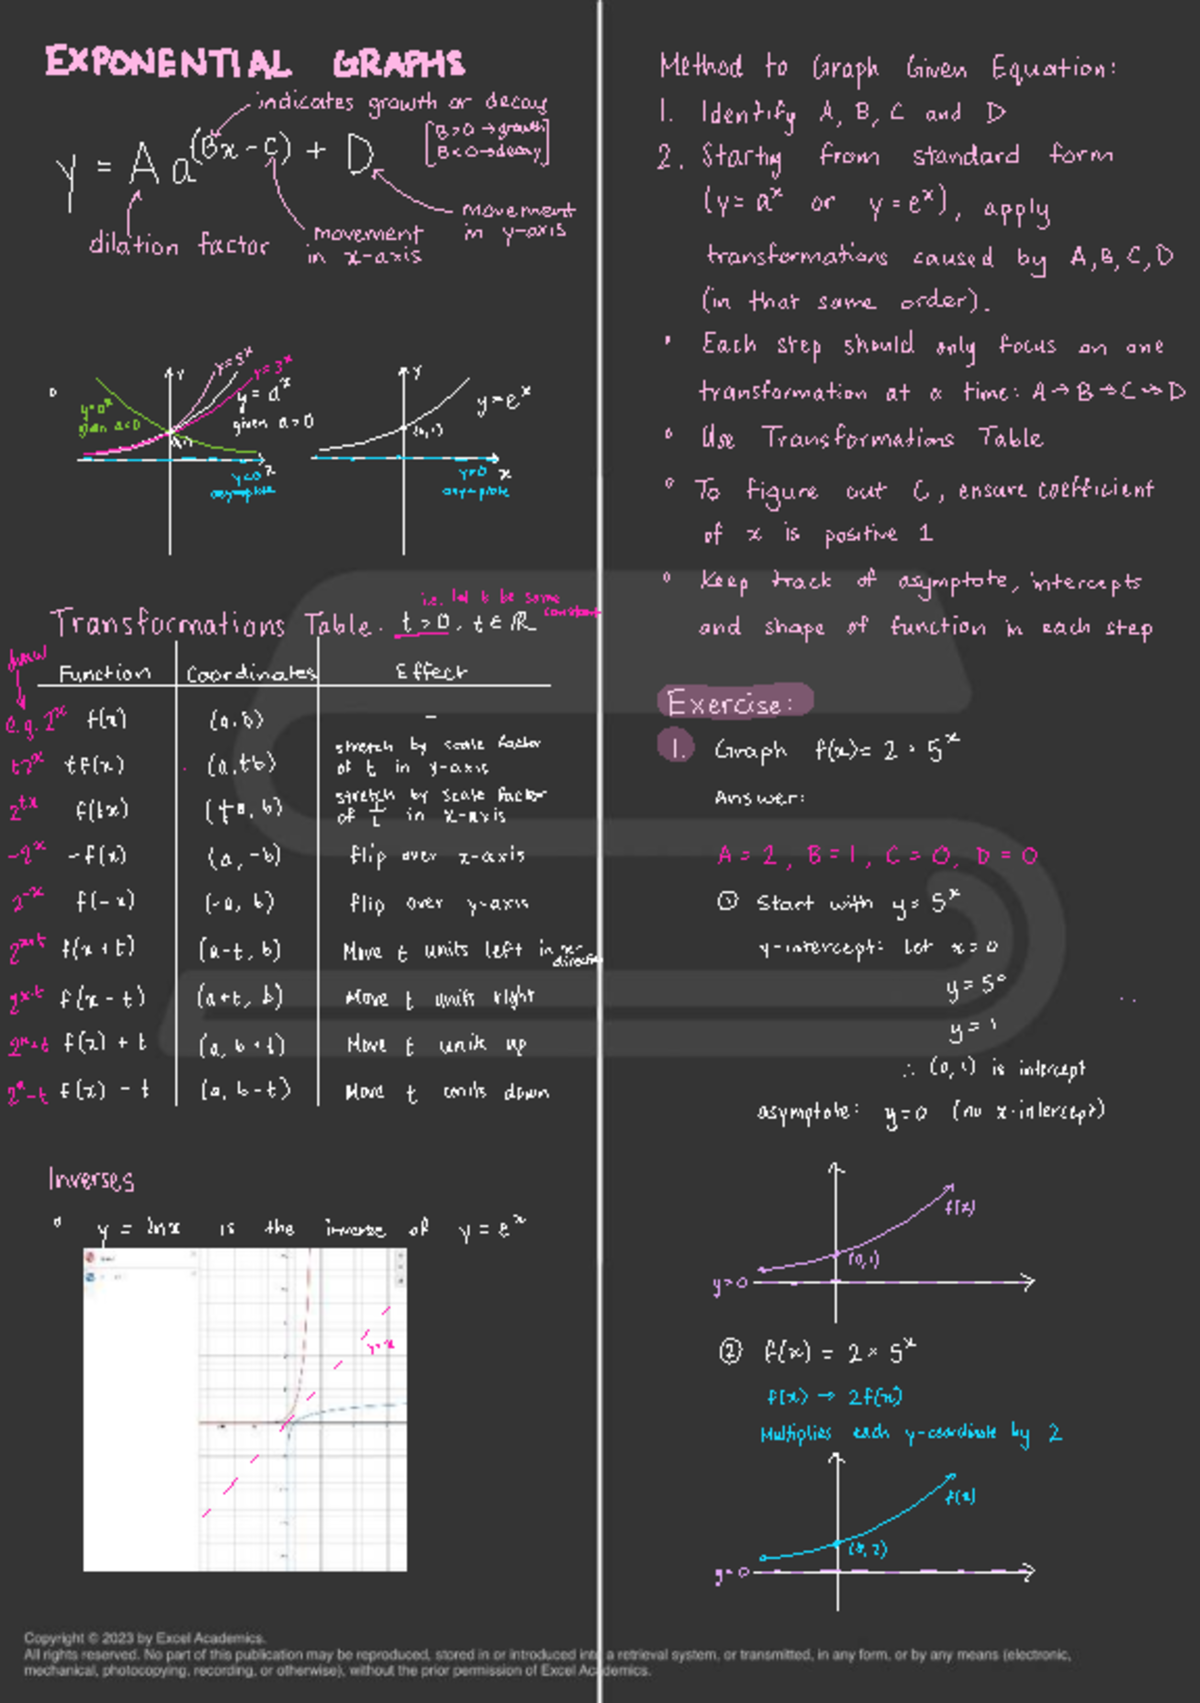 EXPONENTIAL GRAPHS
indicates growth or decay
[B>0 → growth
B<0 → decay]
y = A a^(Bx - C) + D
dilation factor
movement
in x-axis
movement
in y-axis
y=5^x
y=3^x
y = a^x
given a>0
y=a^x
given a<0
y
x
y=0
asymptote
y
y=e^x
(0,1)
y=0
x
asymptote
Transformations Table. t > 0, t ∈ ℝ
i.e. let t be some
constant
Function Coordinates Effect
e.g. 2^x f(x) (a, b) –
t2^x tf(x) (a, tb) stretch by scale factor
of t in y-axis
2^tx f(tx) stretch by scale factor
of 1/t in x-axis
-2^x -f(x) (a, -b) flip over x-axis
2^-x f(-x) (-a, b) flip over y-axis
2^x+t f(x+t) (a-t, b) Move t units left in x-
direction
2^x-t f(x-t) (a+t, b) Move t units right
2^x+t f(x) + t (a, b+t) Move t units up
2^x-t f(x) - t (a, b-t) Move t units down
Inverses
y = lnx is the inverse of y = e^x
y=x
Method to Graph Given Equation:
1. Identify A, B, C and D
2. Starting from standard form
(y= a^x or y = e^x), apply
transformations caused by A, B, C, D
(in that same order).
Each step should only focus on one
transformation at a time: A→B→C→D
Use Transformations Table
To figure out C, ensure coefficient
of x is positive 1
Keep track of asymptote, intercepts
and shape of function in each step
Exercise:
1. Graph f(x)= 2 · 5^x
Answer:
A = 2, B = 1, C = 0, D = 0
① Start with y = 5^x
y-intercept: let x = 0
y = 5°
y = 1
∴ (0, 1) is intercept
asymptote: y=0 (no x-intercept)
f(x)
(0,1)
y=0
② f(x) = 2 × 5^x
f(x) → 2f(x)
Multiplies each y-coordinate by 2
f(x)
(0, 2)
y=0
Copyright © 2023 by Excel Academics.
All rights reserved. No part of this publication may be reproduced, stored in or introduced into a retrieval system, or transmitted, in any form, or by any means (electronic,
mechanical, photocopying, recording, or otherwise), without the prior permission of Excel Academics.